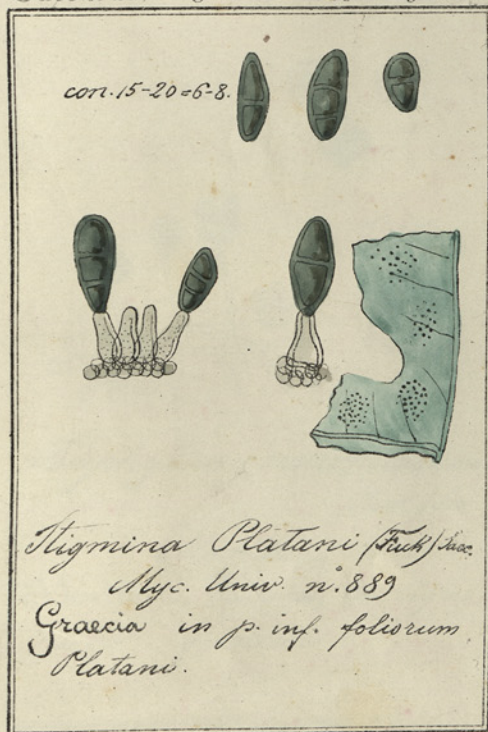 con. 15-20=6-8.
Stigmina Platani (Fuck) Sacc.
Myc. Univ. n.º 889
Graecia in p. inf. foliorum
Platani.